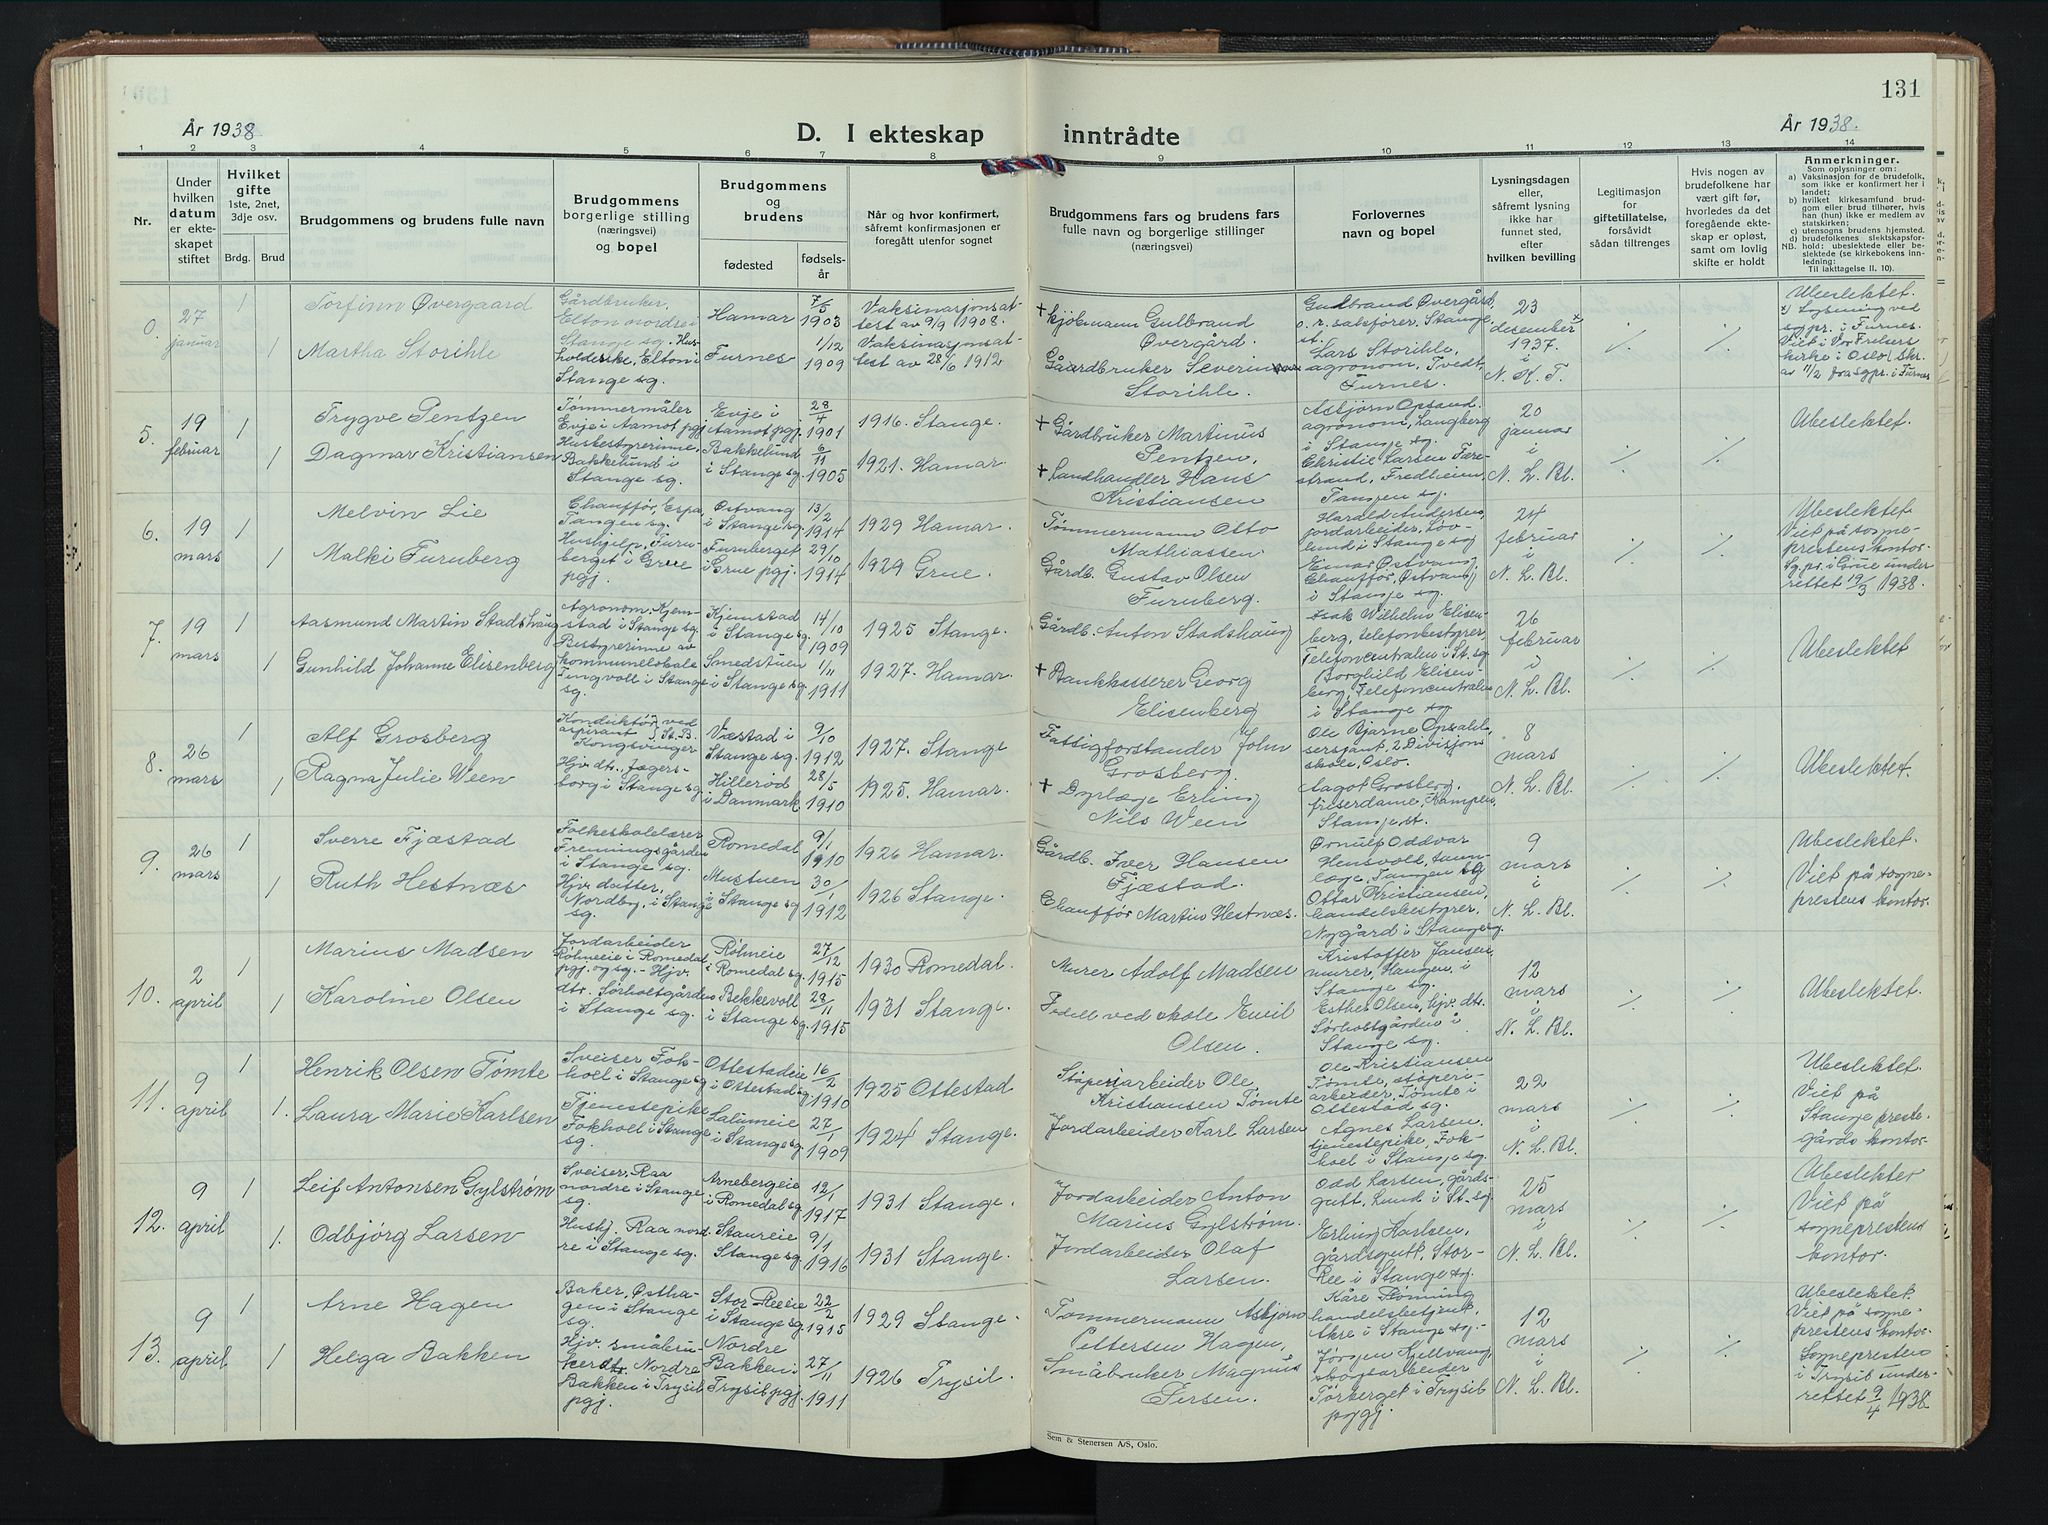 131
År 1938
D. I ekteskap inntrådte
År 1938.
1 2 3 4 5 6 7 8 9 10 11 12 13 14
Nr.
Under hvilken datum er ekteskapet stiftet
Hvilket gifte 1ste, 2net, 3dje osv.
Brdg. Brud
Brudgommens og brudens fulle navn
Brudgommens borgerlige stilling (næringsvei) og bopel
Brudgommens og brudens
fødested
fødselsår
Når og hvor konfirmert, såfremt konfirmasjonen er foregått utenfor sognet
Brudgommens fars og brudens fars fulle navn og borgerlige stillinger (næringsvei)
Forlovernes navn og bopel
Lysningsdagen eller, såfremt lysning ikke har funnet sted, efter hvilken bevilling
Legitimasjon for giftetillatelse, forsåvidt sådan tiltrenges
Hvis nogen av brudefolkene har vært gift før, hvorledes da det foregående ekteskap er opløst, samt om lovlig skifte er holdt
Anmerkninger.
Som oplysninger om:
a) Vaksinasjon for de brudefolk, som ikke er konfirmert her i landet;
b) hvilket kirkesamfund brudgom eller brud tilhører, hvis han (hun) ikke er medlem av statskirken;
c) utensogns brudens hjemsted.
d) brudefolkenes slektskapsforhold: ubeslektede eller beslektede (se kirkebokens innledning:
NB.
Til iakttagelse II. 10).
0.
27 januar
1
1
Torfinn Overgaard
Martha Storihle
Gårdbruker, Elton nordre i Stange sg. Husholderske, Elton i Stange sg.
Hamar
Furnes
7/5 1903
1/12 1909
Vaksinasjonsattest av 9/9 1908.
Vaksinasjonsattest av 28/6 1912
+ kjøbmann Gulbrand Overgård.
Gårdbruker Severin Storihle.
Gudbrand Overgård, o.r. sakfører, Stange st.
Lars Storihle, agronom, Tvedt, Furnes.
23 desember 1937. i N. K. T.
Ubeslektet.
Lysning ved sgpr. i Furnes. Viet i Vor Frelsers kirke i Oslo, skr. av 11/2 fra sgpr. i Furnes
5.
19 februar
1
1
Trygve Pentzen
Dagmar Kristiansen
Tømmermåler Evje i Aamot pgj
Husbestyrerinne, Bakkelund i Stange sg.
Evje i Aamot pgj.
Bakkelund i Stange sg.
28/4 1901
6/11 1905
1916. Stange.
1921. Hamar.
+ Gårdbruker Martinus Pentzen,
+ Landhandler Hans Kristiansen
Asbjørn Opsand. agronom, Langberg i Stange sg.
Christie Larsen Færestrand, Fredheim, Tangen sg.
20 januar i N. L. Bl.
Ubeslektet.
6.
19 mars
1
1
Melvin Lie
Malki Furuberg
Chauffør, Espa, Tangen sg.
Hushjelp, Furuberget i Grue pgj.
Østvang i Stange sg.
Furuberget i Grue pgj.
13/2 1914
29/10 1914
1929 Hamar.
1929 Grue.
Tømmermann Otto Mathiassen
Gårdb. Gustav Olsen Furuberg.
Harald Andersen, jordarbeider, Lovlund i Stange sg
Einar Østvang, Chauffør, Østvang i Stange sg.
24 februar i N. L. Bl.
Ubeslektet
Viet på sogneprestens kontor.
Sg. pr. i Grue underrettet 19/3 1938.
7.
19 mars
1
1
Aasmund Martin Stadshaug
Gunhild Johanne Elisenberg
Agronom. Kjemstad i Stange sg.
Bestyrerinne av kommunelokale Tingvoll i Stange sg.
Kjemstad i Stange sg.
Smedstuen i Stange sg.
14/10 1909
1/11 1911
1925 Stange.
1927. Hamar.
Gårdb. Anton Stadshaug
+ Bankkasserer Georg Elisenberg
Isak Wilhelm Elisenberg, telefonbestyrer, Telefoncentralen i St. sg
Borghild Elisenberg, Telefoncentralen i Stange sg
26 februar i N. L. Bl.
Ubeslektet
8.
26 mars
1
1
Alf Grosberg
Ragna Julie Ween
Konduktøraspirant ved St. B. Kongsvinger
Hjv. dtr., Jægersborg i Stange sg.
Væstad i Stange sg.
Hillerød i Danmark
9/10 1912
28/5 1910
1927. Stange
1925. Hamar.
Fattigforstander John Grosberg.
+ Dyrlæge Erling Nils Ween
Ole Bjarne Opsahl, sersjant, 2 Divisjonsskole, Oslo.
Aagot Grosberg, friserdame, Kampen, Stange st.
8 mars N. L. Bl.
Ubeslektet.
9.
26 mars
1
1
Sverre Fjæstad
Ruth Hestnæs
Folkeskolelærer Frenningsgården i Stange sg.
Hjv. datter, Nordby, i Stange sg.
Romedal
Mustuen i Stange sg
9/1 1910
30/1 1912
1926 Hamar.
1926 Stange.
Gårdb. Iver Hansen Fjæstad.
Chauffør Martin Hestnæs.
Ørnulf Oddvar Hensvold, tannlæge, Tangen sg
Ottar Kristiansen, handelsbestyrer, Nygård i Stange sg.
9 mars i N. L. Bl.
Ubeslektet.
Viet på sogneprestens kontor.
10.
2 april
1
1
Marius Madsen
Karoline Olsen
Jordarbeider Rølmeie i Romedal pgj. og sg. - Hjv. dtr. Sørholtgården i Stange sg.
Rølmeie i Romedal sg.
Bekkevoll i Stange sg.
27/12 1915
28/11 1915
1930 Romedal.
1931 Stange.
Murer Adolf Madsen
Pedell ved skole Emil Olsen.
Kristoffer Jansen, murer, Haugen, i Stange sg.
Esther Olsen, hjv. dtr. Sørholtgården i Stange sg.
12 mars i N. L. Bl.
Ubeslektet.
11.
9 april
1
1.
Henrik Olsen Tømte
Laura Marie Karlsen
Sveiser Fokhoel i Stange sg
Tjenestepike Fokhoel i Stange sg.
Ottestadeie i Ottestad sg
Lalumeie i Stange sg.
16/2 1910
27/1 1909
1925 Ottestad
1924 Stange.
Støperiarbeider Ole Kristiansen Tømte
Jordarbeider Karl Larsen
Ole Kristiansen Tømte, støperiarbeider, Tømte i Ottestad sg.
Agnes Larsen, tjenestepike, Fokhoel i Stange sg.
22 mars i N. L. Bl.
Ubeslektet.
Viet på Stange prestegårds kontor.
12.
9 april
1
1.
Leif Antonsen Gylstrøm
Odbjørg Larsen
Sveiser, Raa nordre i Stange sg.
Hushj. Raa nordre i Stange sg.
Arnebergeie i Romedal sg.
Staureie Stange sg.
12/1 1917
9/1 1916
1931 Stange.
1931 Stange.
Jordarbeider Anton Marius Gylstrøm.
Jordarbeider Olaf Larsen.
Odd Larsen, gårdsgutt, Lund i St. sg.
Erling Karlsen, gårdsgutt, Stor-Ree i Stange sg.
25 mars i N. L. Bl.
Ubeslektet
Viet på sogneprestens kontor.
13.
9 april
1
1
Arne Hagen
Helga Bakken
Baker, Østhagen i Stange sg.
Hjv. småbrukerdtr. Nordre Bakken i Trysil pgj.
Stor Reeie i Stange sg.
Nordre Bakken i Trysil pgj.
22/2 1915
27/11 1911
1929 Stange.
1926 Trysil.
Tømmermann Asbjørn Pettersen Hagen,
Småbruker Magnus Persen.
Kåre Rønning handelsbetjent, Akre i Stange sg.
Jørgen Kjellvang, skogsarbeider Tørberget i Trysil pgj.
12 mars i N. L. Bl.
Ubeslektet.
Viet på sogneprestens kontor.
Sogneprest i Trysil underrettet 9/4 1938
Sem & Stenersen A/S, Oslo.